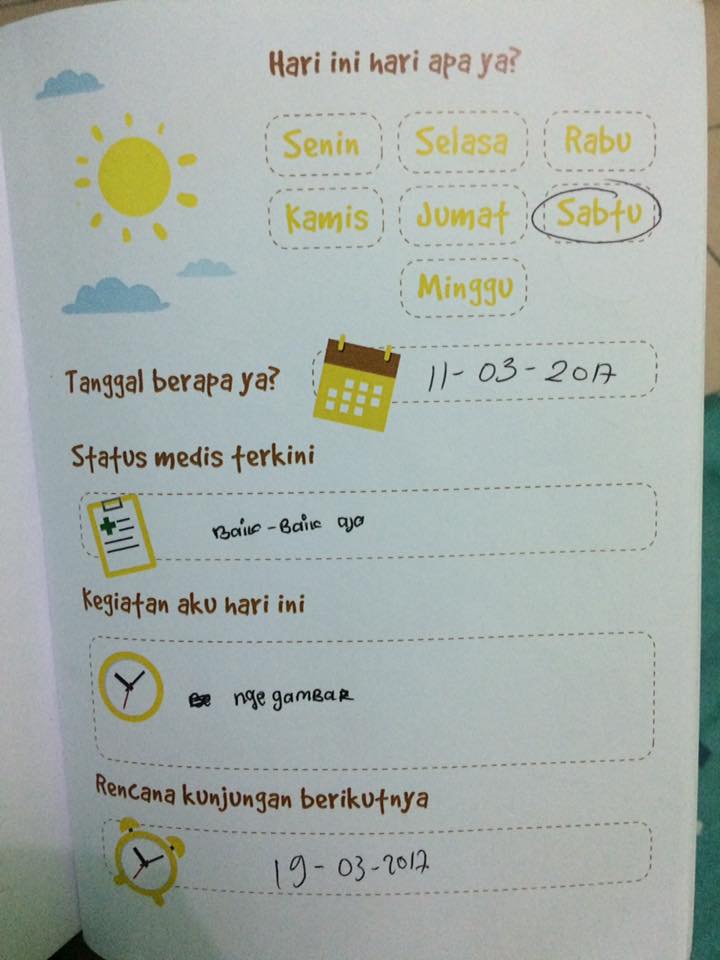 Hari ini hari apa ya?
Senin Selasa Rabu
Kamis Jumat Sabtu
Minggu
Tanggal berapa ya? 11-03-2017
Status medis terkini
Baik-Baik aja
Kegiatan aku hari ini
nge gambar
Rencana kunjungan berikutnya
19-03-2017